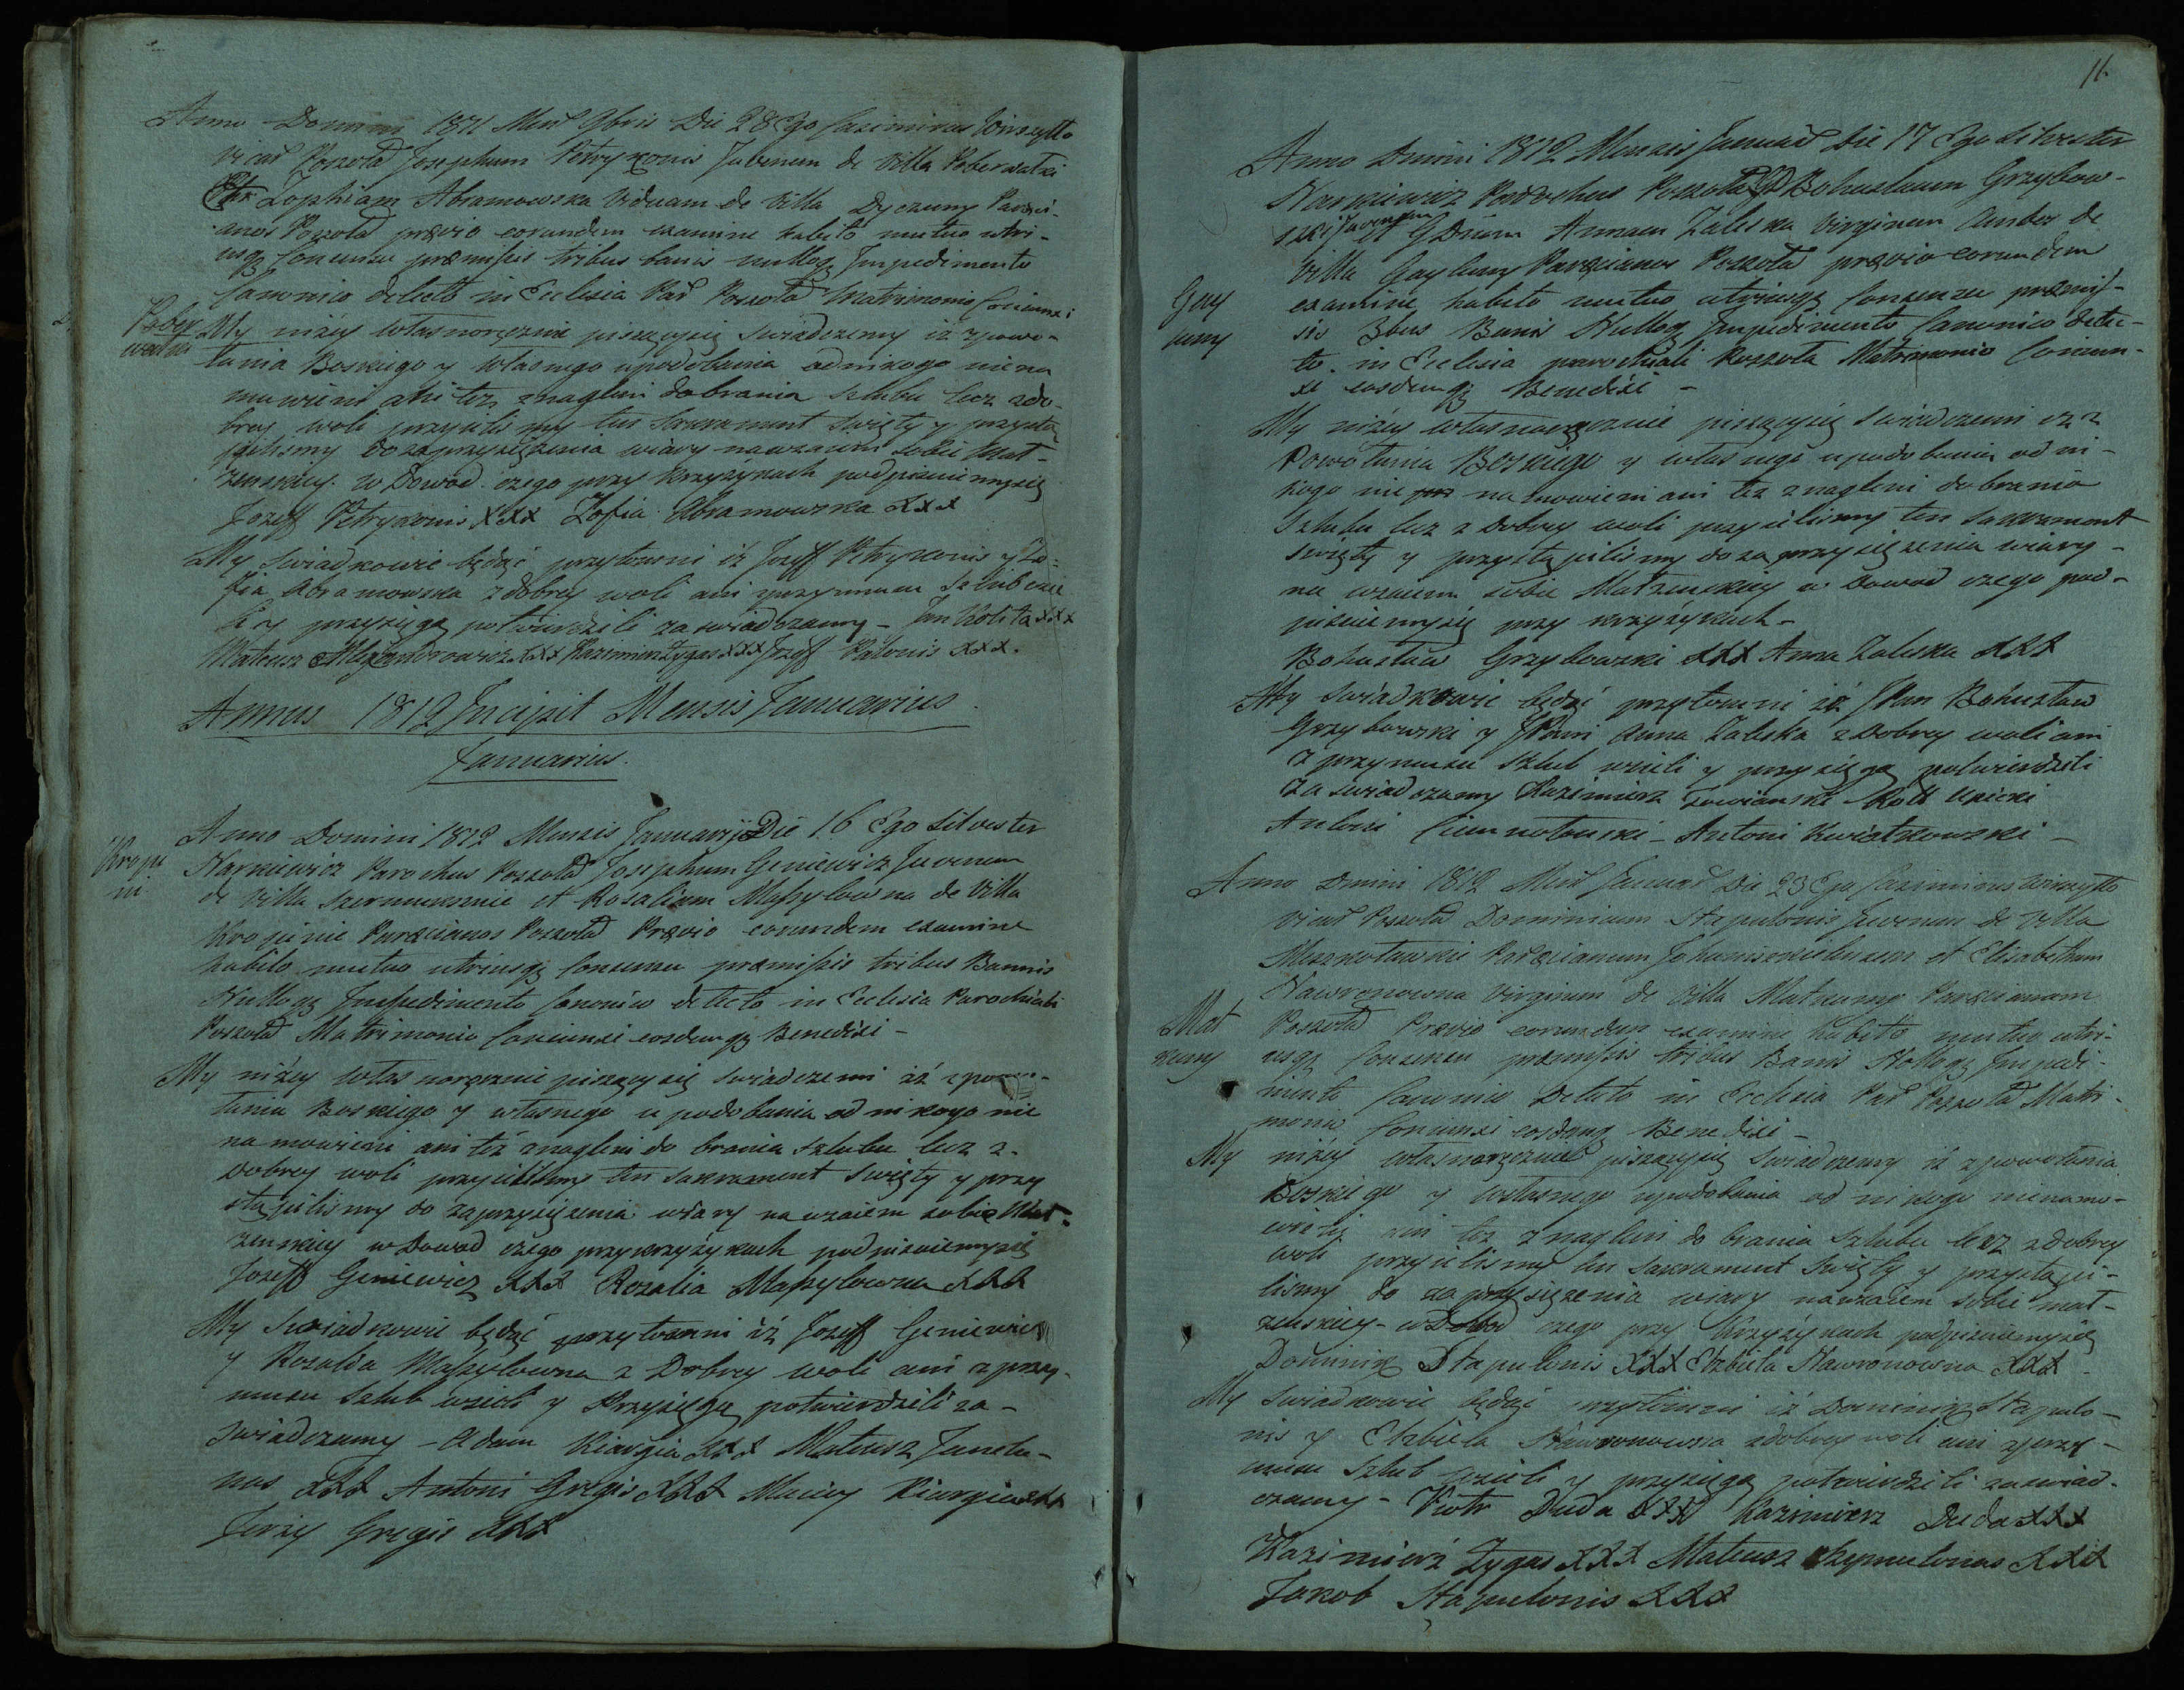 Anno Domini 1811 Mens 9bris Die 28 Ego Casimirus Wirszytto
Vicar Poszold Josephum Petrykonis Juvenem de Villa Poberwalki
et Zophiam Abramowska Viduam de Villa Dyczuny Parœci-
anos Poszold prævio eorundem examine habito mutuo utri-
usq Consensu præmissis tribus banis nulloq Impedimento
Canonico detecto in Eclesia Par Poszold Matrimonio Coniunxi
Pober
walki
My niżey własnoręcznie piszącysię świadczemy iż zpowo-
łania Boskiego y własnego upodobania odnikogo niena
mowieni ani też znagleni dobrania szlubu lecz zdo-
brey woli przyieli my ten Sakrament Swięty y przysta
piliśmy do zaprzysiężenia wiary nawzaiem sobie Mał-
żenskiey. w Dowod czego przy krzyżykach podpisuiemysię
Jozeff Petrykonis XXX Zofia Abramowska XXX
My swiadkowie będąc przytomni iż Jozeff Petrykonis y Zo-
fia Abramowska zdobrey woli ani zprzymusu Szlub
y przysięgą potwierdzili zaświadczamy - Jan XXX
Mateusz Alexandrowicz XXX Kazimierz Zygas XXX Jozeff Patonis XXX.
Annus 1812 Incipit Mensis Januarius
Januarius.
Krope
ni.
Anno Domini 1812 Mensis Januarij Die 16 Ego Silvester
Narkiewicz Parochus Poszold Josephum Geniewicz Juvenem
de Villa et Rosaliam Massylowna de Villa
Kropienie Parœcianos Poszold Prævio eorundem examine
habito mutuo utriusq Consensu præmissis tribus Bannis
Nulloq Impedimento Canonico detecto in Eclesia Parochiali
Poszold Matrimonio Coniunxi eosdemq Benedixi -
My niżey własnoręcznie piszącysię świadczemi iż zpowo-
łania Boskiego y własnego upodobania od nikogo nie
namowieni ani też znagleni do brania szlubu lecz z-
Dobrey woli przyieliśmy ten sakrament Swięty y przy
stąpiliśmy do zaprzysiężenia wiary nawzaiem sobie Mał-
żenskiey w Dowod czego przykrzyżykach podpisuiemysię
Jozeff Geniewicz XXX Rozalia Massylowna XXX
My Swiadkowie będąc przytomni iż Jozeff Geniewicz
y Rozalia Massylowna z Dobrey woli ani zprzy-
musu Szlub wzieli y Przysięgą potwierdzili za-
swiadczamy - Adam Kiargia XXX Mateusz Janelu-
nas XXX Antoni Gregis XXX Maciey Kiargia XXX
Jerzy Gregis XXX
11.
Anno Domini 1812 Mensis Januar Die 17 Ego Silvester
Narkiewicz Parochus Poszold Bohuslaum Grzybow-
ski Juvenem et GDnam Annam Zaleska Virginem Ambos de
Villa Gayluny Parœcianos Poszold prævio eorundem
Gay
luny
examine habito mutuo utriusq Consensu præmis-
sis 3bus Banis Nulloq Impedimento Canonico detec-
to in Eclesia parochiali Poszold Matrimonio Coniun-
xi eosdemq Benedixi -
My niżey własnoręcznie piszącysię świadczemi iż z
Powołania Boskiego y własnego upodobania od ni-
kogo nie namowieni ani też znagleni do brania
Szlubu lecz z Dobrey woli przyieliśmy ten Sakrament
Swięty y przystąpiliśmy do zaprzysiężenia wiary-
na wzaiem sobie Małżenskiey w Dowod czego pod-
pisuiemysię przy krzyżykach -
Bohusław Grzybowski XXX Anna Zaleska XXX
My Swiadkowie będąc przytomni iż JPan Bohusław
Grzybowski y JPani Anna Zaleska z Dobrey woli ani
z przymusu Szlub wzieli y przysięgą potwierdzili
Zaświadczamy Kazimierz Towianski Rott Upicki
Antoni - Antoni Kwiatkowski -
Anno Dmini 1812 Mens Januar Die 23 Ego Casimirus Wirszytto
Vicar Poszold Dominicum Stapulonis Juvenem de Villa
Parœcianum et Elisabetham
Nawronowna Virginem de Villa Matkuny Parœcianam
Mat
kuny
Poszold Prævio eorundem examine habito mutuo utri-
usq Consensu præmissis tribus Banis Nulloq Impedi-
mento Canonico Detecto in Eclesia Par Poszold Matri-
monio Coniunxi eosdemq Benedixi -
My niżey własnoręcznie piszącysię świadczemy iż zpowołania
Boskiego y własnego upodobania od nikogo nienamo-
wieni ani też znagleni do brania Szlubu lecz zdobrey
woli przyieliśmy ten sakrament Swięty y przystąpi-
liśmy do zaprzysiężenia wiary nawzaiem sobie mał-
żenskiey - w Dowod czego przy Krzyżykach podpisuiemysię
Dominik Stapulonis XXX Elzbieta Nawronowna XXX -
My Swiadkowie będąc przytomni iż Dominik Stapulo-
nis y Elzbieta Nawronowna zdobrey woli ani zprzy-
musu Szlub wzieli y przysięgą potwierdzili zaswiad-
czamy - Piotr Duda XXX Kazimierz Duda XXX
Kazimierz Zygas XXX Mateusz Szymulonas XXX
Jakob Stapulonis XXX